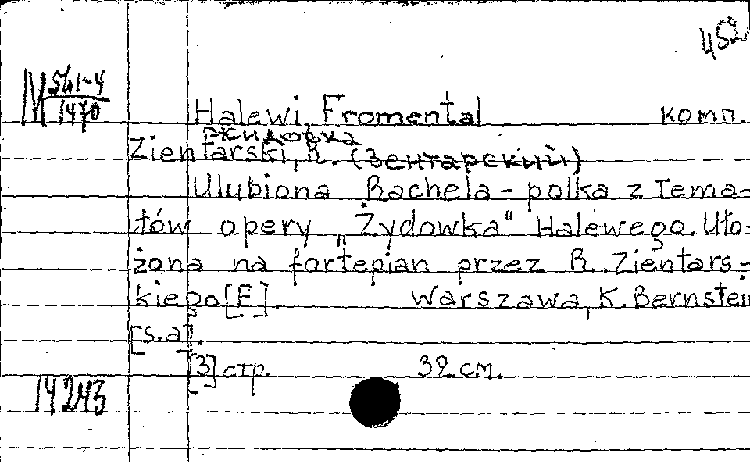 452
M 561-4
1470
Halewi, Fromental комп.
Жидовка
Zientarski, R. (Зентарский)
Ulubiona Rachela - polka z Tema-
tów opery „Żydowka" Halewego. Uło-
żona na fortepian przez R. Zientars-
kiego [F]. Warszawa, K. Bernstein
[s.a].
[3] стр. 32 см.
14243